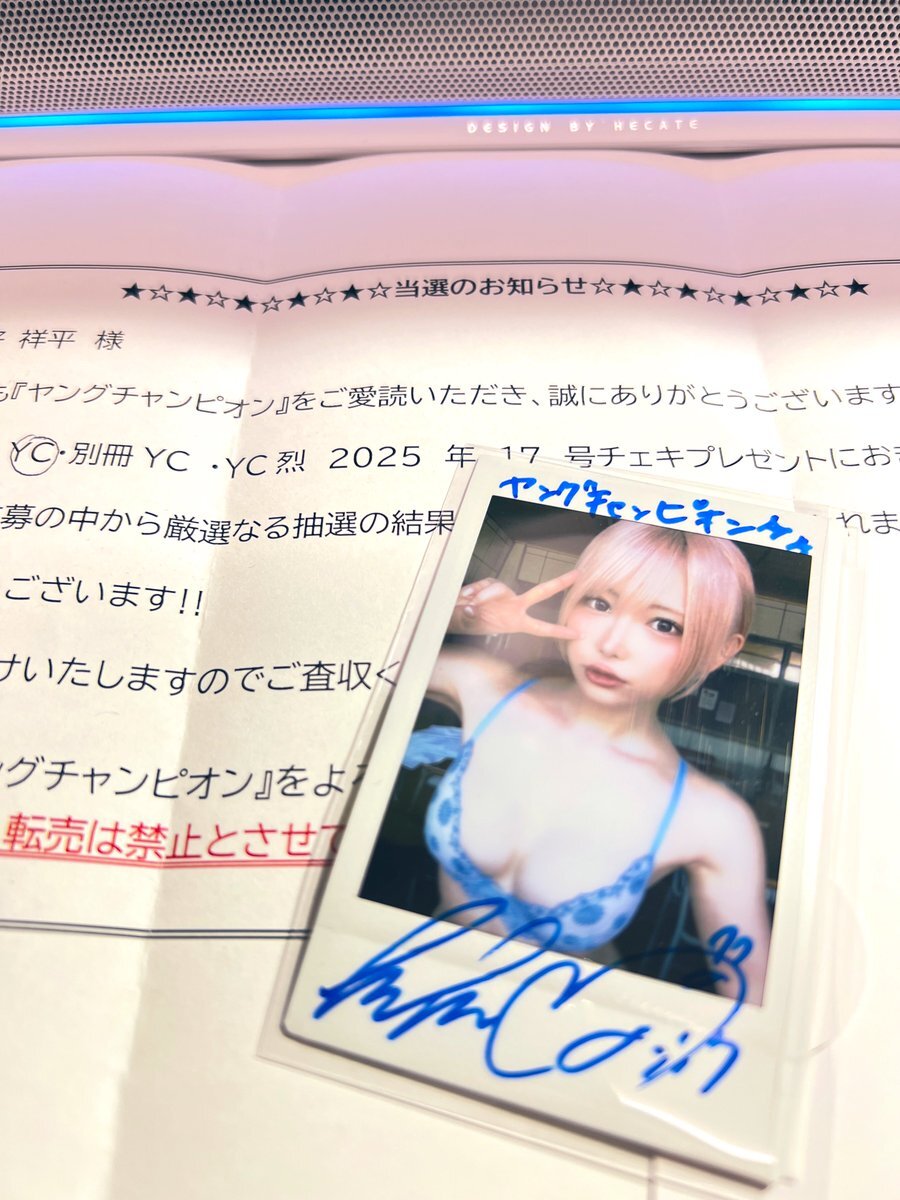 DESIGN BY HECATE
★☆★☆★☆★☆★☆当選のお知らせ☆★☆★☆★☆★☆★
祥平 様
『ヤングチャンピオン』をご愛読いただき、誠にありがとうございます
YC・別冊YC ・YC烈 2025 年 17 号チェキプレゼントにお
募の中から厳選なる抽選の結果
れま
ございます!!
けいたしますのでご査収く
ングチャンピオン』をよろ
転売は禁止とさせて
ヤングチャンピオン